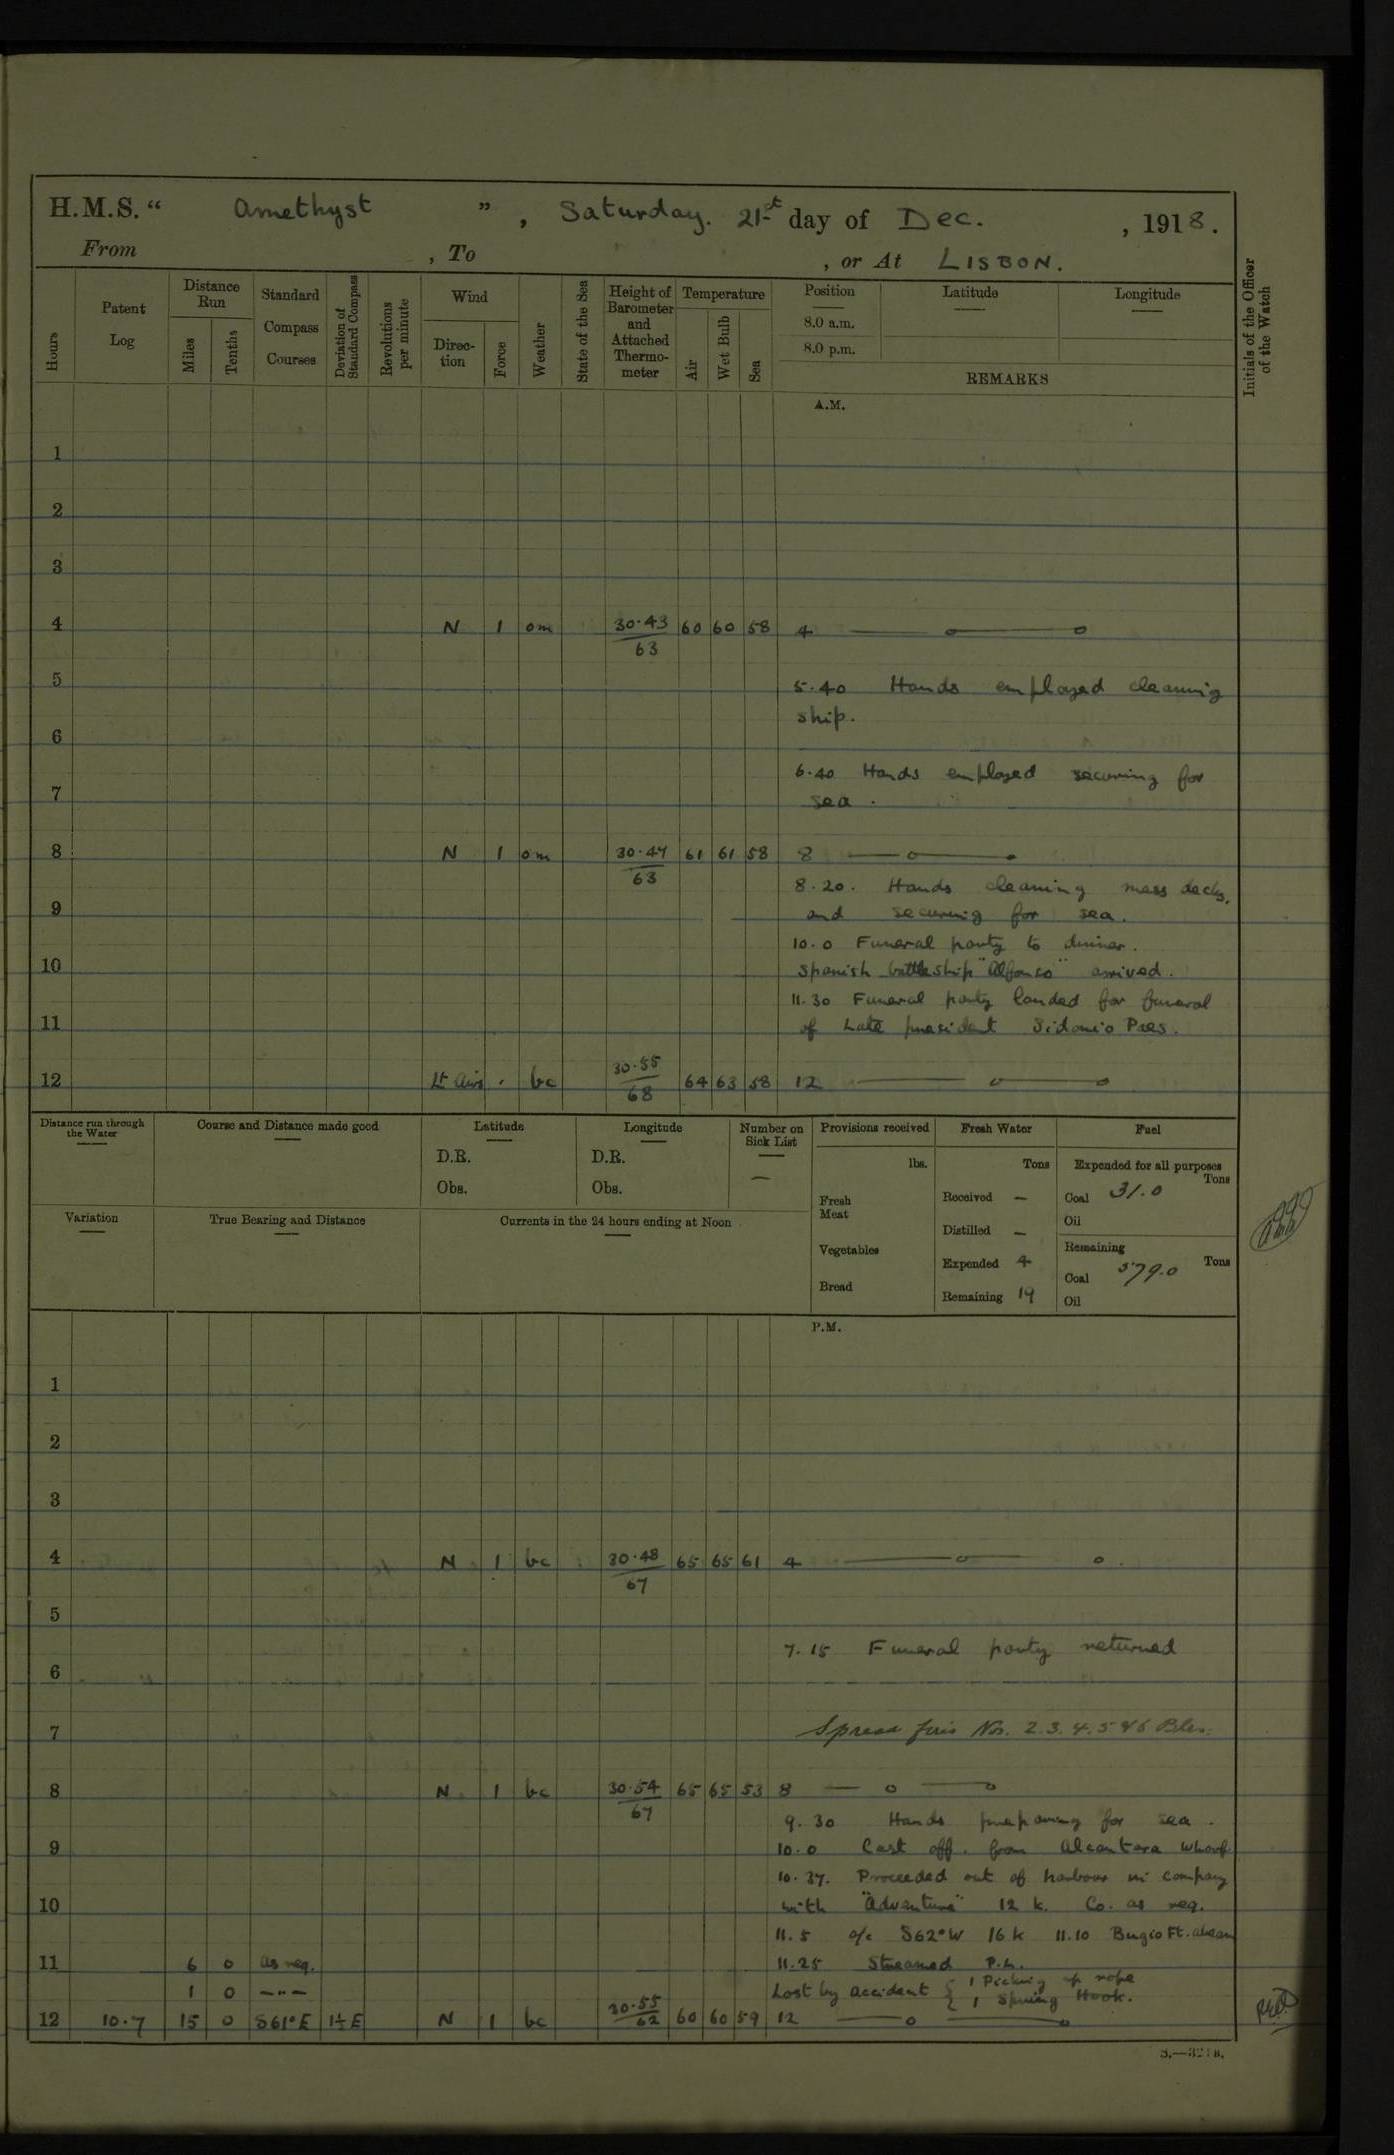 H.M.S. " Amethyst ", Saturday. 21st day of Dec. , 1918.
From , To , or At LISBON.
Hours
Patent Log
Distance Run
Miles
Tenths
Standard Compass Courses
Deviation of Standard Compass
Revolutions per minute
Wind
Direction
Force
Weather
State of the Sea
Height of Barometer and Attached Thermometer
Temperature
Air
Wet Bulb
Sea
Position
8.0 a.m.
8.0 p.m.
Latitude
Longitude
REMARKS
Initials of the Officer of the Watch
A.M.
1
2
3
4 N 1 om 30.43/63 60 60 58 4
5 5.40 Hands employed cleaning
ship.
6
6.40 Hands employed securing for
7 sea.
8 N 1 om 30.47/63 61 61 58 8
8.20. Hands cleaning mess decks,
9 and securing for sea.
10.0 Funeral party to dinner.
10 Spanish battleship "Alfonso" arrived.
11.30 Funeral party landed for funeral
11 of Late president Sidonio Paes.
12 Lt Airs . bc 30.55/68 64 63 58 12
Distance run through the Water
Course and Distance made good
Latitude
D.R.
Obs.
Longitude
D.R.
Obs.
Number on Sick List
—
Provisions received
lbs.
Fresh Meat
Vegetables
Bread
Fresh Water
Tons
Received —
Distilled —
Expended 4
Remaining 19
Fuel
Expended for all purposes
Tons
Coal 31.0
Oil
Remaining
Tons
Coal 579.0
Oil
Variation
True Bearing and Distance
Currents in the 24 hours ending at Noon
P.M.
1
2
3
4 N 1 bc 30.48/67 65 65 61 4
5
7.15 Funeral party returned
6
7 Spread fires Nos. 2.3.4.5 & 6 Blrs.
8 N. 1 bc 30.54/67 65 65 53 8
9.30 Hands preparing for sea.
9 10.0 Cast off. from Alcantara Wharf
10.37. Proceeded out of harbour in company
10 with "Adventure" 12 k. Co. as req.
11.5 a/c S62°W 16k 11.10 Bugio Ft. abeam
11 6 0 as req. 11.25 Streamed P.L.
1 0 —"— Lost by accident { 1 Picking up rope
1 Spring Hook.
12 10.7 15 0 S61°E 1½E N 1 bc 30.55/62 60 60 59 12